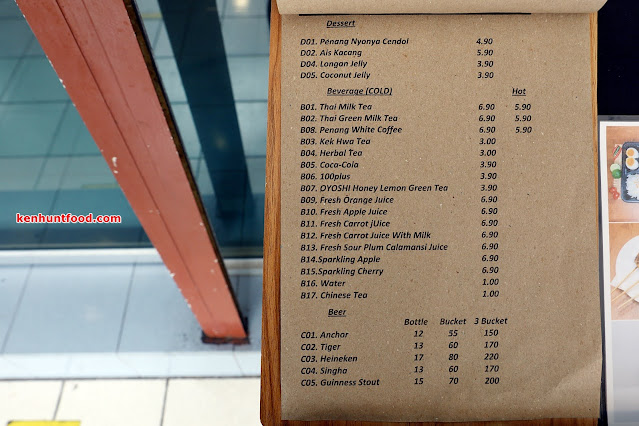 Dessert
D01. Penang Nyonya Cendol 4.90
D02. Ais Kacang 5.90
D04. Longan Jelly 3.90
D05. Coconut Jelly 3.90
Beverage (COLD) Hot
B01. Thai Milk Tea 6.90 5.90
B02. Thai Green Milk Tea 6.90 5.90
B08. Penang White Coffee 6.90 5.90
B03. Kek Hwa Tea 3.00
B04. Herbal Tea 3.00
B05. Coca-Cola 3.90
B06. 100plus 3.90
B07. OYOSHI Honey Lemon Green Tea 3.90
B09. Fresh Orange Juice 6.90
B10. Fresh Apple Juice 6.90
B11. Fresh Carrot jUice 6.90
B12. Fresh Carrot Juice With Milk 6.90
B13. Fresh Sour Plum Calamansi Juice 6.90
B14.Sparkling Apple 6.90
B15.Sparkling Cherry 6.90
B16. Water 1.00
B17. Chinese Tea 1.00
Beer
Bottle Bucket 3 Bucket
C01. Anchar 12 55 150
C02. Tiger 13 60 170
C03. Heineken 17 80 220
C04. Singha 13 60 170
C05. Guinness Stout 15 70 200
kenhuntfood.com